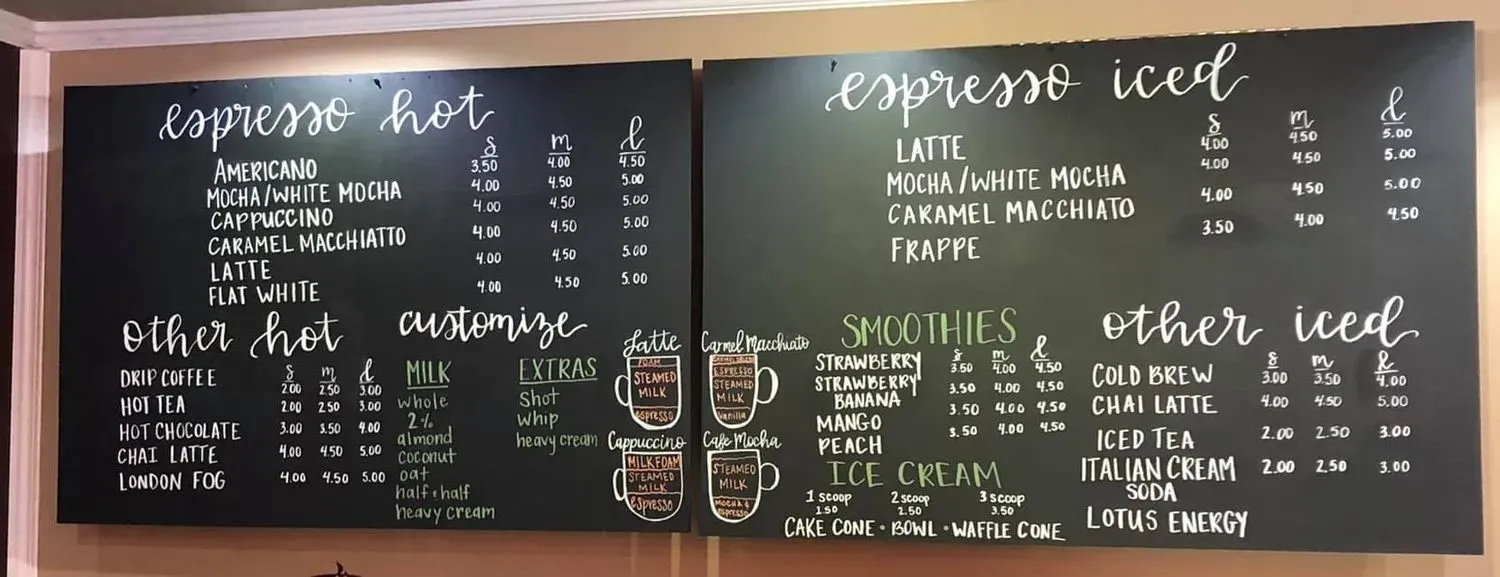 espresso hot
s m l
AMERICANO 3.50 4.00 4.50
MOCHA/WHITE MOCHA 4.00 4.50 5.00
CAPPUCCINO 4.00 4.50 5.00
CARAMEL MACCHIATTO 4.00 4.50 5.00
LATTE 4.00 4.50 5.00
FLAT WHITE 4.00 4.50 5.00
other hot
s m l
DRIP COFFEE 2.00 2.50 3.00
HOT TEA 2.00 2.50 3.00
HOT CHOCOLATE 3.00 3.50 4.00
CHAI LATTE 4.00 4.50 5.00
LONDON FOG 4.00 4.50 5.00
customize
MILK
whole
2%
almond
coconut
oat
half+half
heavy cream
EXTRAS
Shot
whip
heavy cream
Latte
FOAM
STEAMED
MILK
espresso
Cappuccino
MILK FOAM
STEAMED
MILK
espresso
espresso iced
s m l
LATTE 4.00 4.50 5.00
MOCHA/WHITE MOCHA 4.00 4.50 5.00
CARAMEL MACCHIATO 4.00 4.50 5.00
FRAPPE 3.50 4.00 4.50
Carmel Macchiato
ESPRESSO
STEAMED
MILK
Vanilla
Cafe Mocha
STEAMED
MILK
MOCHA &
ESPRESSO
SMOOTHIES
s m l
STRAWBERRY 3.50 4.00 4.50
STRAWBERRY 3.50 4.00 4.50
BANANA
MANGO 3.50 4.00 4.50
PEACH 3.50 4.00 4.50
ICE CREAM
1 scoop 2 scoop 3 scoop
1.50 2.50 3.50
CAKE CONE • BOWL • WAFFLE CONE
other iced
s m l
COLD BREW 3.00 3.50 4.00
CHAI LATTE 4.00 4.50 5.00
ICED TEA 2.00 2.50 3.00
ITALIAN CREAM 2.00 2.50 3.00
SODA
LOTUS ENERGY